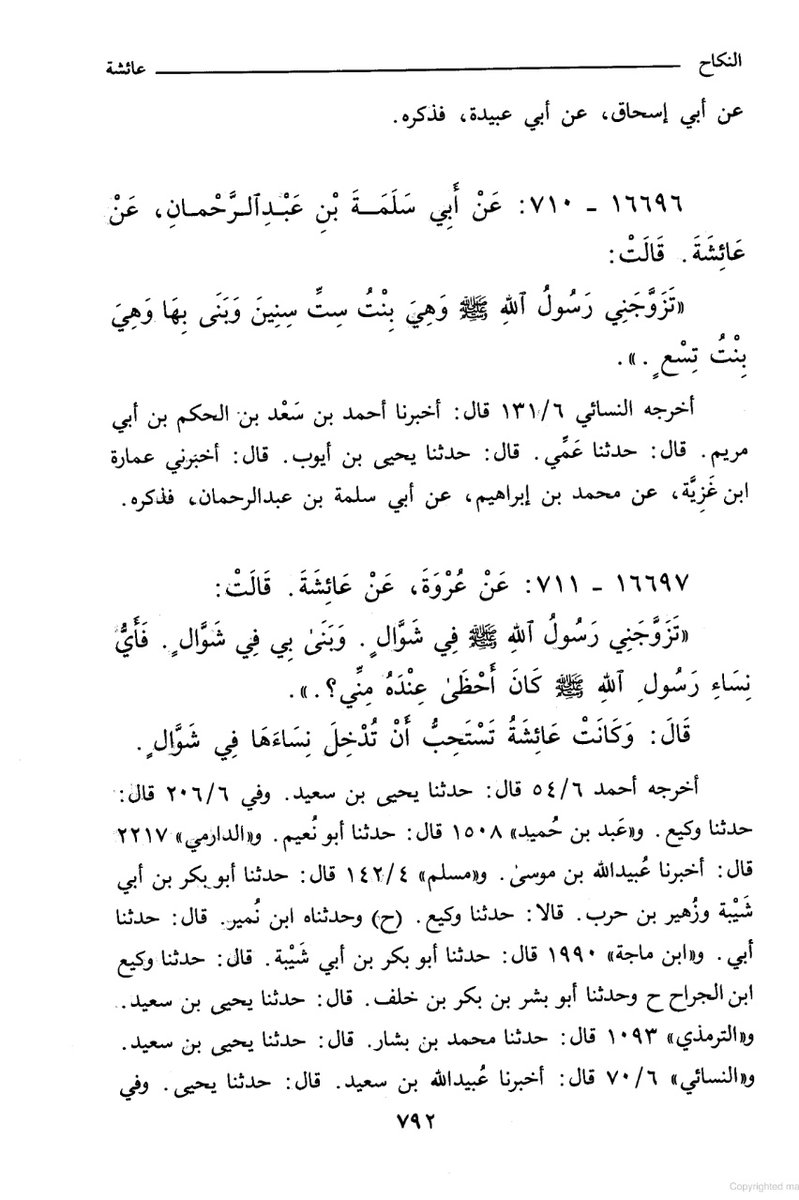 النكاح عائشة
عن أبي إسحاق، عن أبي عبيدة، فذكره.
١٦٦٩٦ - ٧١٠: عَنْ أَبِي سَلَمَةَ بْنِ عَبْدِالرَّحْمانِ، عَنْ
عَائِشَةَ. قَالَتْ:
«تَزَوَّجَنِي رَسُولُ ٱللهِ ﷺ وَهِيَ بِنْتُ سِتِّ سِنِينَ وَبَنَى بِهَا وَهِيَ
بِنْتُ تِسْعٍ.».
أخرجه النسائي ١٣١/٦ قال: أخبرنا أحمد بن سَعْد بن الحكم بن أبي
مريم. قال: حدثنا عَمِّي. قال: حدثنا يحيى بن أيوب. قال: أخبرني عمارة
ابن غَزِيَّة، عن محمد بن إبراهيم، عن أبي سلمة بن عبدالرحمان، فذكره.
١٦٦٩٧ - ٧١١: عَنْ عُرْوَةَ، عَنْ عَائِشَةَ. قَالَتْ:
«تَزَوَّجَنِي رَسُولُ ٱللهِ ﷺ فِي شَوَّالٍ. وَبَنَىٰ بِي فِي شَوَّالٍ. فَأَيُّ
نِسَاءِ رَسُولِ ٱللهِ ﷺ كَانَ أَحْظَىٰ عِنْدَهُ مِنِّي؟.».
قَالَ: وَكَانَتْ عَائِشَةُ تَسْتَحِبُّ أَنْ تُدْخِلَ نِسَاءَهَا فِي شَوَّالٍ.
أخرجه أحمد ٥٤/٦ قال: حدثنا يحيى بن سعيد. وفي ٢٠٦/٦ قال:
حدثنا وكيع. و«عَبد بن حُميد» ١٥٠٨ قال: حدثنا أبو نُعيم. و«الدارمي» ٢٢١٧
قال: أخبرنا عُبيدالله بن موسىٰ. و«مسلم» ١٤٢/٤ قال: حدثنا أبو بكر بن أبي
شَيْبة وزُهير بن حرب. قالا: حدثنا وكيع. (ح) وحدثناه ابن نُمير. قال: حدثنا
أبي. و«ابن ماجة» ١٩٩٠ قال: حدثنا أبو بكر بن أبي شَيْبة. قال: حدثنا وكيع
ابن الجراح ح وحدثنا أبو بشر بن بكر بن خلف. قال: حدثنا يحيى بن سعيد.
و«الترمذي» ١٠٩٣ قال: حدثنا محمد بن بشار. قال: حدثنا يحيى بن سعيد.
و«النسائي» ٧٠/٦ قال: أخبرنا عُبيدالله بن سعيد. قال: حدثنا يحيى. وفي
٧٩٢
Copyrighted ma